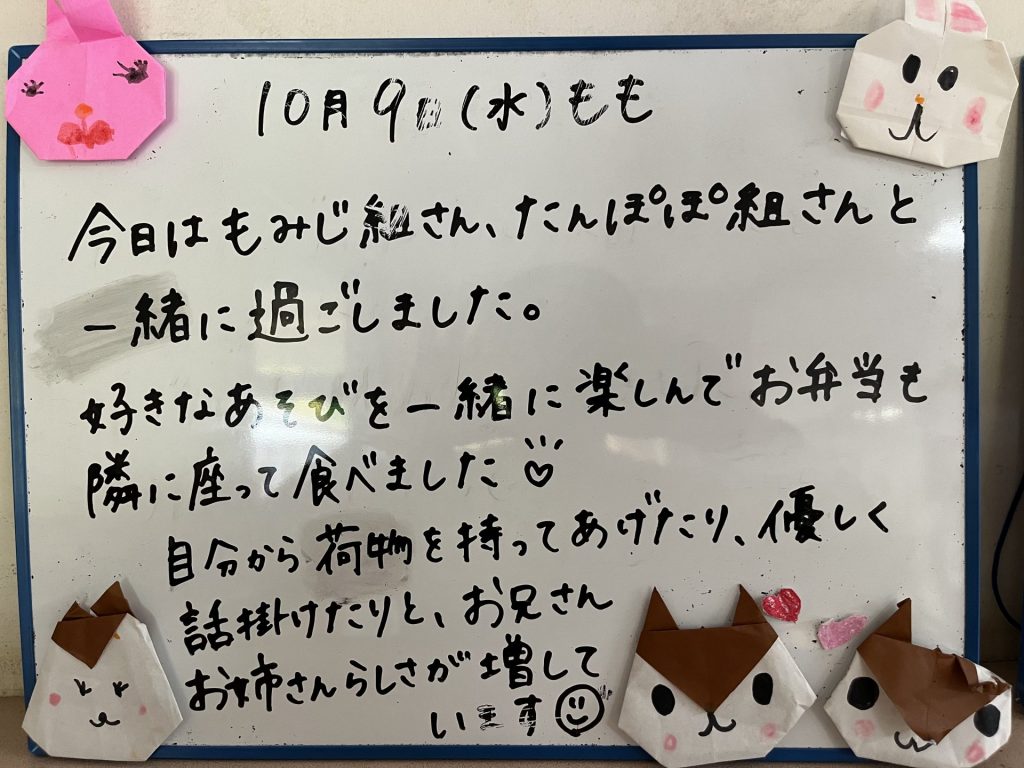 10月9日(水)もも
今日はもみじ組さん、たんぽぽ組さんと
一緒に過ごしました。
好きなあそびを一緒に楽しんでお弁当も
隣に座って食べました♡
自分から荷物を持ってあげたり、優しく
話掛けたりと、お兄さん
お姉さんらしさが増して
います☺